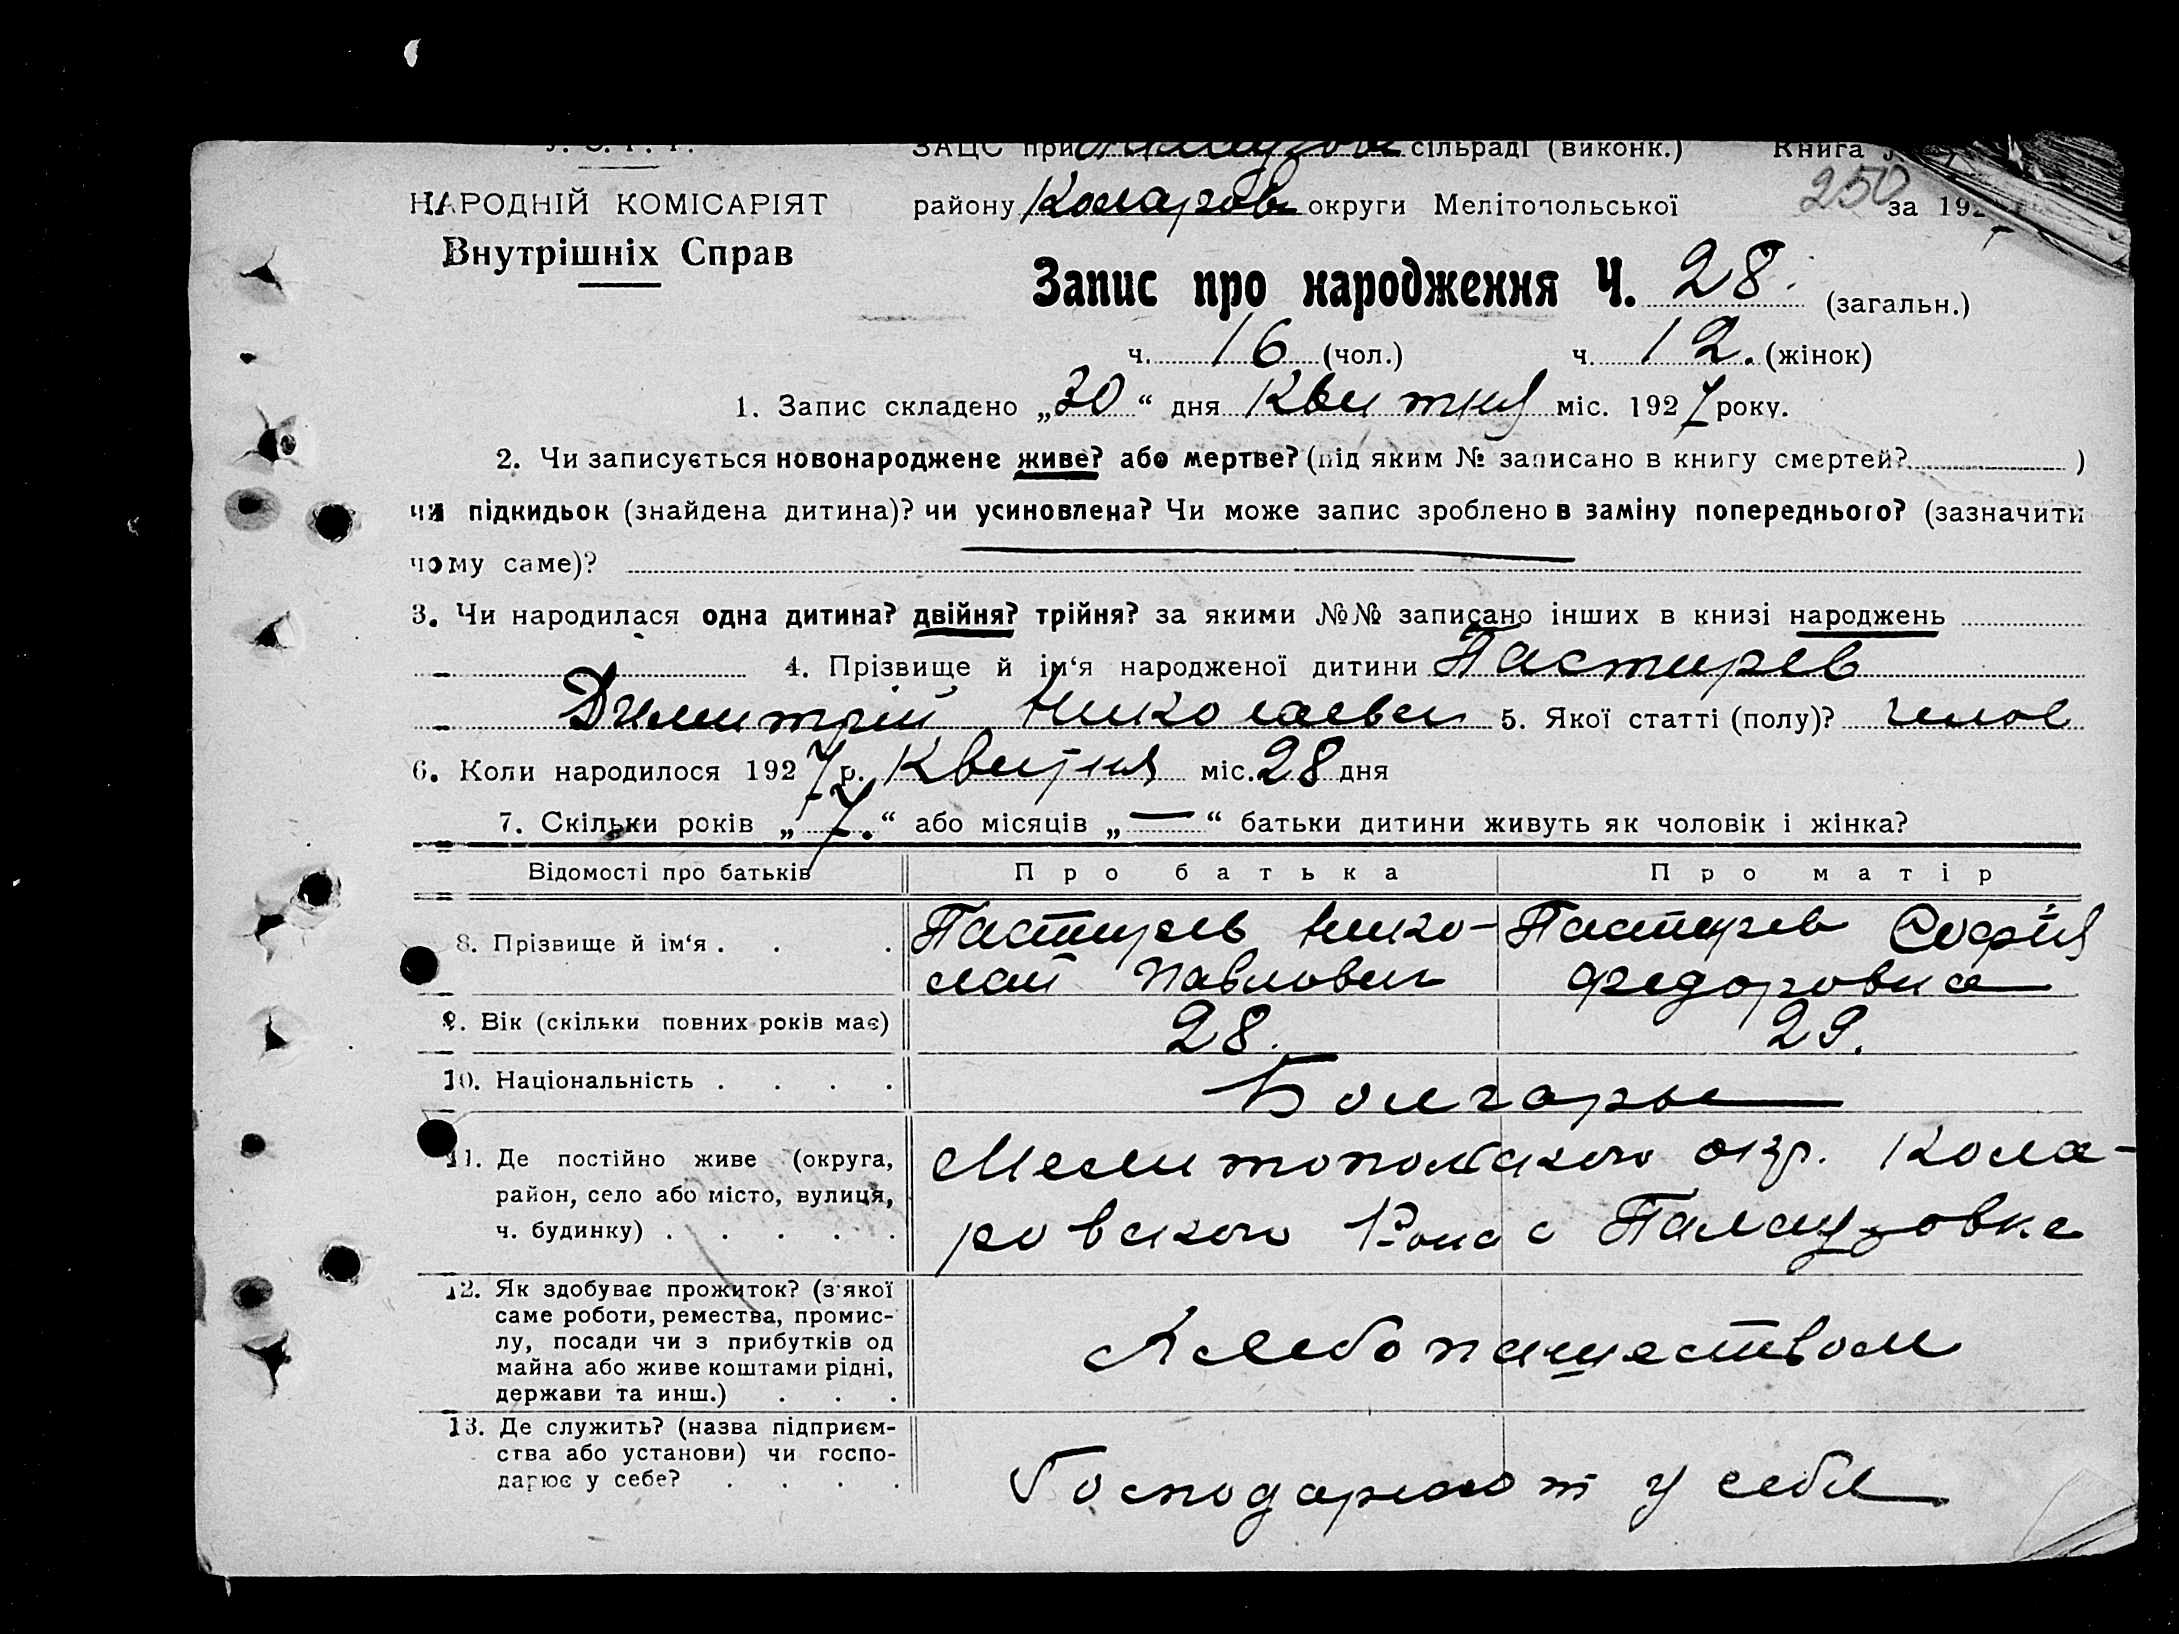 У. С. Р. Р. ЗАЦС при Палаузов сільраді (виконк.) Книга
НАРОДНІЙ КОМІСАРІЯТ району Коларов округи Мелітопольської 250 за 192
Внутрішніх Справ
Запис про народження Ч. 28. (загальн.)
ч. 16 (чол.) ч. 12. (жінок)
1. Запис складено „30“ дня Квитня міс. 1927 року.
2. Чи записується новонароджене живе? або мертве? (під яким № записано в книгу смертей? )
чи підкидьок (знайдена дитина)? чи усиновлена? Чи може запис зроблено в заміну попереднього? (зазначити
чому саме)?
3. Чи народилася одна дитина? двійня? трійня? за якими №№ записано інших в книзі народжень
4. Прізвище й ім‘я народженої дитини Пастирев
Димитрій Николаевич 5. Якої статті (полу)? челов
6. Коли народилося 1927 р. Квитня міс. 28 дня
7. Скільки років „7.“ або місяців „—“ батьки дитини живуть як чоловік і жінка?
Відомості про батьків Про батька Про матір
8. Прізвище й ім‘я . . . Пастирев Нико- Пастирев Софія
лай Павлович Федоровна
9. Вік (скільки повних років має) 28. 29.
10. Національність . . . . Болгары
11. Де постійно живе (округа, Мелитопольского окр. Кола-
район, село або місто, вулиця,
ч. будинку) . . . . . ровского Рона с Палаузовке
12. Як здобуває прожиток? (з якої
саме роботи, ремества, промис-
лу, посади чи з прибутків од Хлебопашеством
майна або живе коштами рідні,
держави та инш.) . . .
13. Де служить? (назва підприєм-
ства або установи) чи госпо-
дарює у себе? . . . . Господарюют у себя